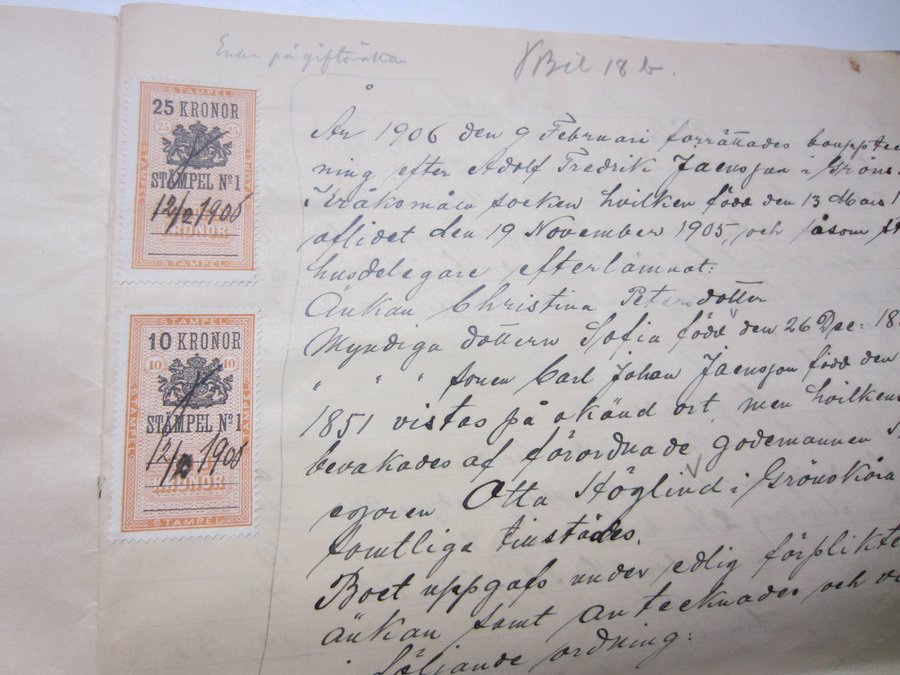 Enkan på giftorätten
Bil 18 b.
STÄMPEL
25 KRONOR
25 25
STÄMPEL Nº 1
12/2 1906
KRONOR
STÄMPEL
STÄMPEL
10 KRONOR
10 10
STÄMPEL Nº 1
12/2 1906
KRONOR
STÄMPEL
År 1906 den 9 Februari förrättades bouppteck
ning efter Adolf Fredrik Jaensson i Gröns
Kråksmåla socken hvilken född den 13 Mars 1
aflidet den 19 November 1905, och såsom st
husdelegare efterlämnat:
Änkan Christina Petersdotter
Myndiga dottern Sofia född den 26 Dec: 18
" " " sonen Carl Johan Jaensson född den
1851 vistas på okänd ort, men hvilkens
bevakades af förordnade godemannen
egaren Otto Höglind i Grönskåra
samtliga tillstädes.
Boet uppgafs under edlig förplikte
änkan samt antecknades och v
i följande ordning: